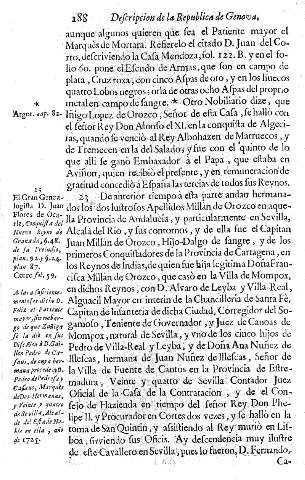 188 Descripcion de la Republica de Genova,
aunque algunos quieren que sea el Patiente mayor el
Marquès de Mortara. Refierelo el citado D. Juan del Cor-
to, descriviendo la Casa Mendoza, fol. 122. B. y en el fo-
lio 60. pone el Escudo de Armas, que son en campo de
plata, Cruz roxa; con cinco Aspas de oro, y en los huecos
quatro Lobos negros: orla de otras ocho Aspas del proprio
metal en campo de sangre. * Otro Nobiliario dize, que
Iñigo Lopez de Orozco, Señor de esta Casa, se hallò con
el señor Rey Don Alonso el XI. en la conquista de Algeci-
ras, quando se venciò al Rey Albohazen de Marruecos, y
de Tremecen en la del Salado; y fue con el quinto de lo
que alli se ganò Embaxador à el Papa, que estaba en
Aviñon, quien recibiò el presente, y en remuneracion de
gratitud concediò à España las tercias de todos sus Reynos.
23 De anterior tiempo à esta parte andan hermana-
dos los dos ilustres Apellidos Millan de Orozco en aque-
lla Provincia de Andalucia, y particularmente en Sevilla,
Alcalà del Rio, y sus contornos, y de ella fue el Capitan
Juan Millan de Orozco, Hijo-Dalgo de sangre, y de los
primeros Conquistadores de la Provincia de Cartagena, en
los Reynos de Indias, de quien fue hija legitima Doña Fran-
cisca Millan de Orozco, que casò en la Villa de Mompox,
en dichos Reynos, con D. Alvaro de Leyba, y Villa-Real,
Alguacil Mayor en interin de la Chancilleria de Santa Fè,
Capitan de Infanteria de dicha Ciudad, Corregidor del So-
gamoso, Teniente de Governador, y Juez de Canoas de
Mompox, natural de Sevilla, y vno de los cinco hijos de
Pedro de Villa-Real, y Leyba, y de Doña Ana Nuñez de
Illescas, hermana de Juan Nuñez de Illescas, Señor de
la Villa de Fuente de Cantos en la Provincia de Estre-
madura, Veinte y quatro de Sevilla, Contador Juez
Oficial de la Casa de la Contratacion, y de el Con-
sejo de Hazienda en tiempo del señor Rey Don Phe-
lipe II. y Procurador en Cortes dos vezes, y se hallò en la
toma de San Quintin, y assistiendo al Rey muriò en Lis-
boa, sirviendo sus Oficis. Ay descendencia muy ilustre
de este Cavallero en Sevilla, pues lo fueron, D. Fernando,
Ca-
*
Argot. cap. 82.
23
El Gran Genea-
logista D. Juan
Flores de Oca-
Nuevo Reyno de
Granada, §.48.
plan. 92. §.9.24.
plan. 87.
Castro, fol. 59.